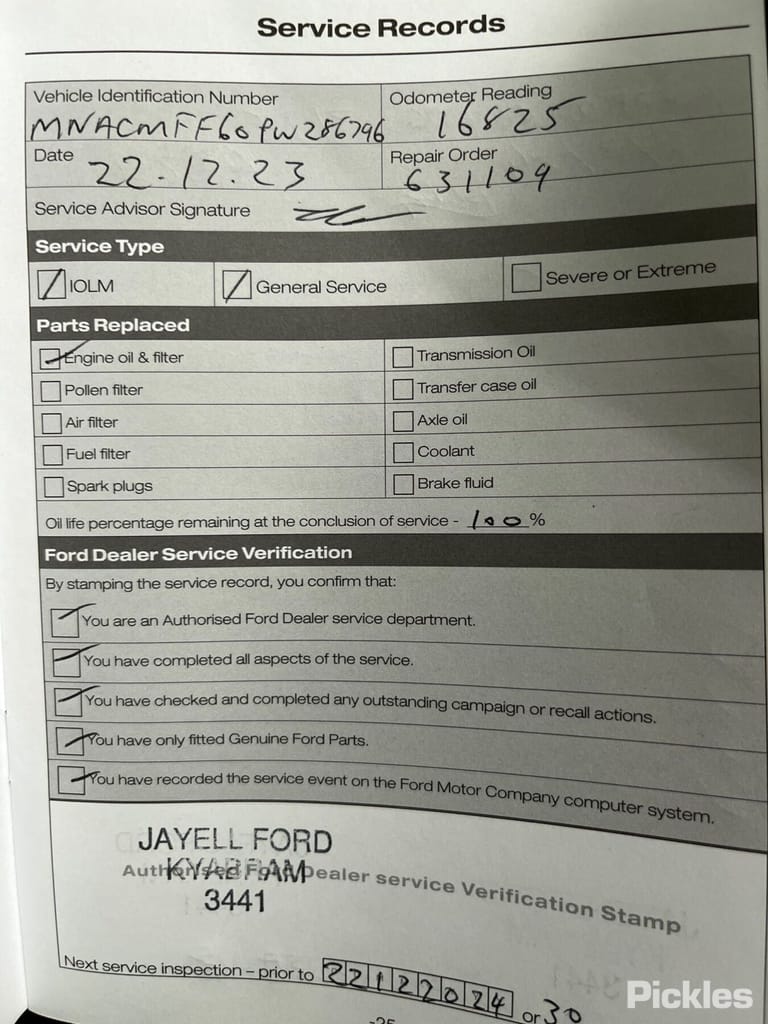 Service Records
Vehicle Identification Number
MNACMFF60PW286796
Odometer Reading
16825
Date 22.12.23
Repair Order
631109
Service Advisor Signature
Service Type
IOLM
General Service
Severe or Extreme
Parts Replaced
Engine oil & filter
Transmission Oil
Pollen filter
Transfer case oil
Air filter
Axle oil
Fuel filter
Coolant
Spark plugs
Brake fluid
Oil life percentage remaining at the conclusion of service - 100 %
Ford Dealer Service Verification
By stamping the service record, you confirm that:
You are an Authorised Ford Dealer service department.
You have completed all aspects of the service.
You have checked and completed any outstanding campaign or recall actions.
You have only fitted Genuine Ford Parts.
You have recorded the service event on the Ford Motor Company computer system.
JAYELL FORD
KYABRAM
Authorised Ford Dealer service Verification Stamp
3441
Next service inspection – prior to 22122024 or 30
Pickles